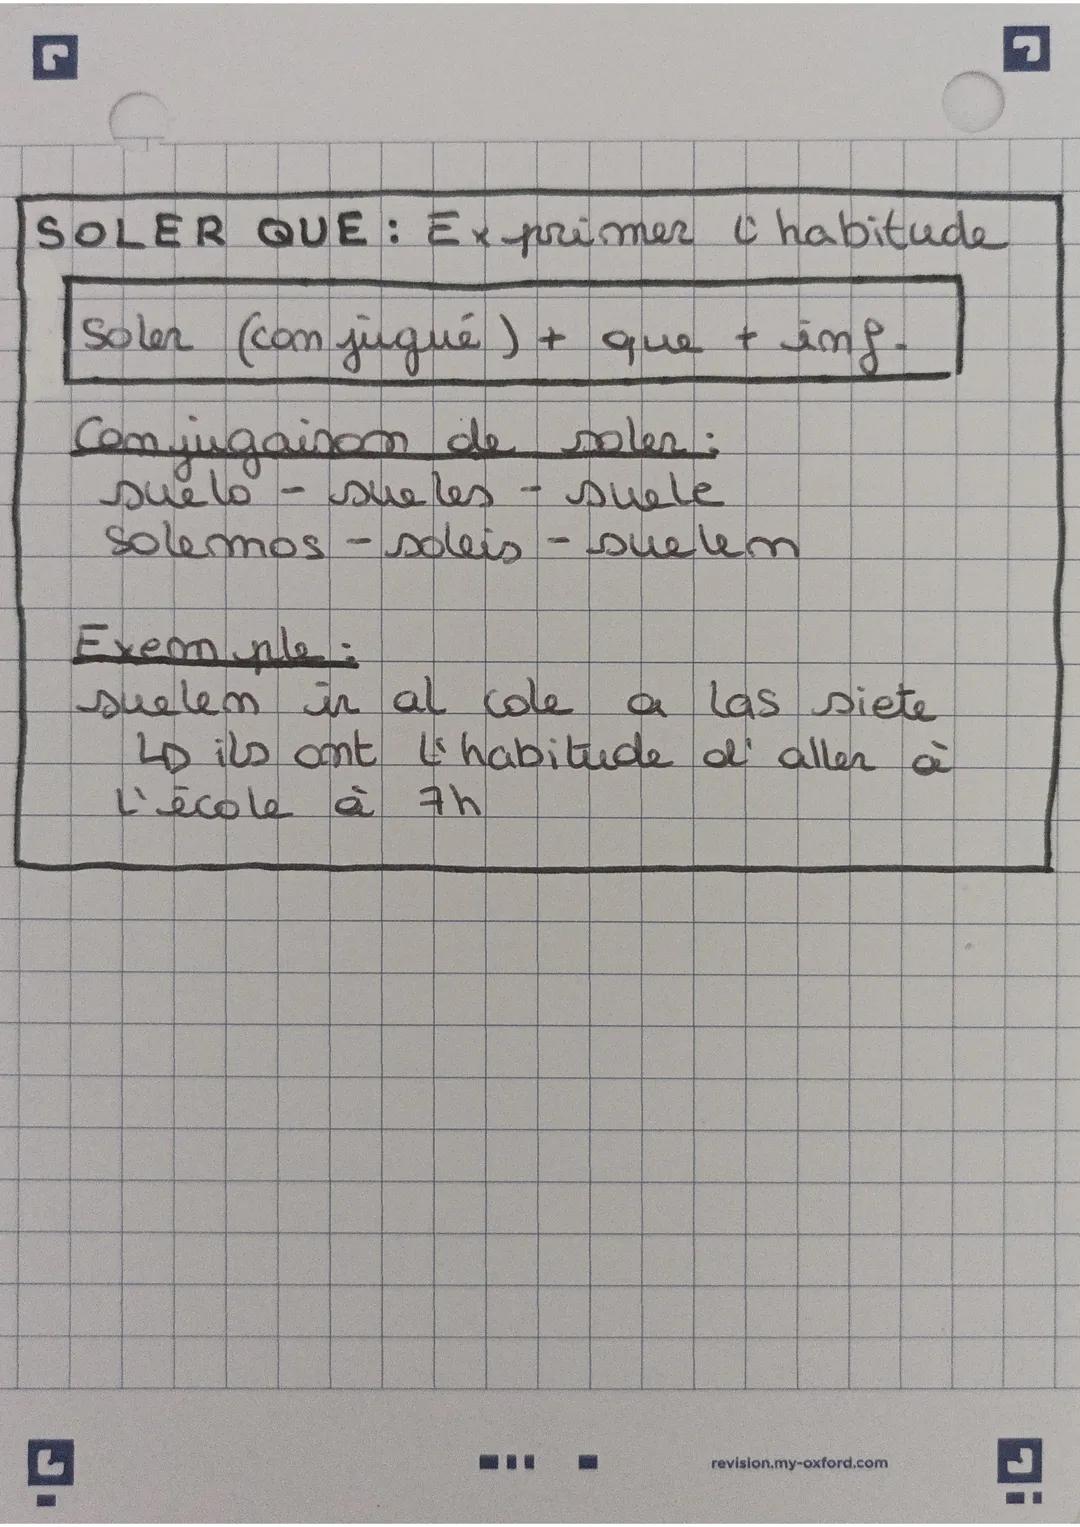 SOLER QUE : Exprimer l'habitude
Soler (conjugué) + que + inf.
Conjugaison de soler :
suelo - sueles - suele
solemos - soleis - suelen
Exemple :
suelen ir al cole a las siete
↳ ils ont l'habitude d'aller à
l'école à 7h
revision.my-oxford.com